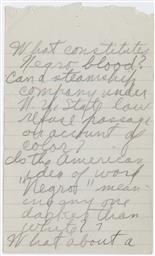 What constitutes
Negro blood?
Can a steamship
company under
N.Y. State law
refuse passage
on account of
color?
Is the American
idea of word
"Negro" mean-
ing any one
darker than
white?
What about a